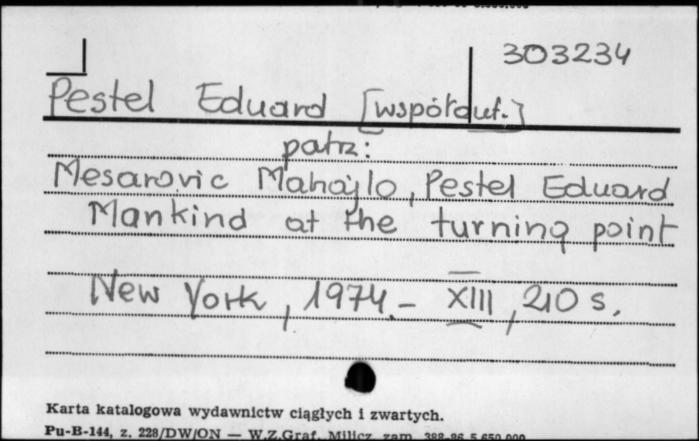 303234
Pestel Eduard [współaut.]
patrz:
Mesarovic Mahajlo, Pestel Eduard
Mankind at the turning point
New York, 1974. - XIII, 210 s.
Karta katalogowa wydawnictw ciągłych i zwartych.
Pu-B-144, z. 228/DW/ON — W.Z.Graf. Milicz, zam. 388-86 5.650.000